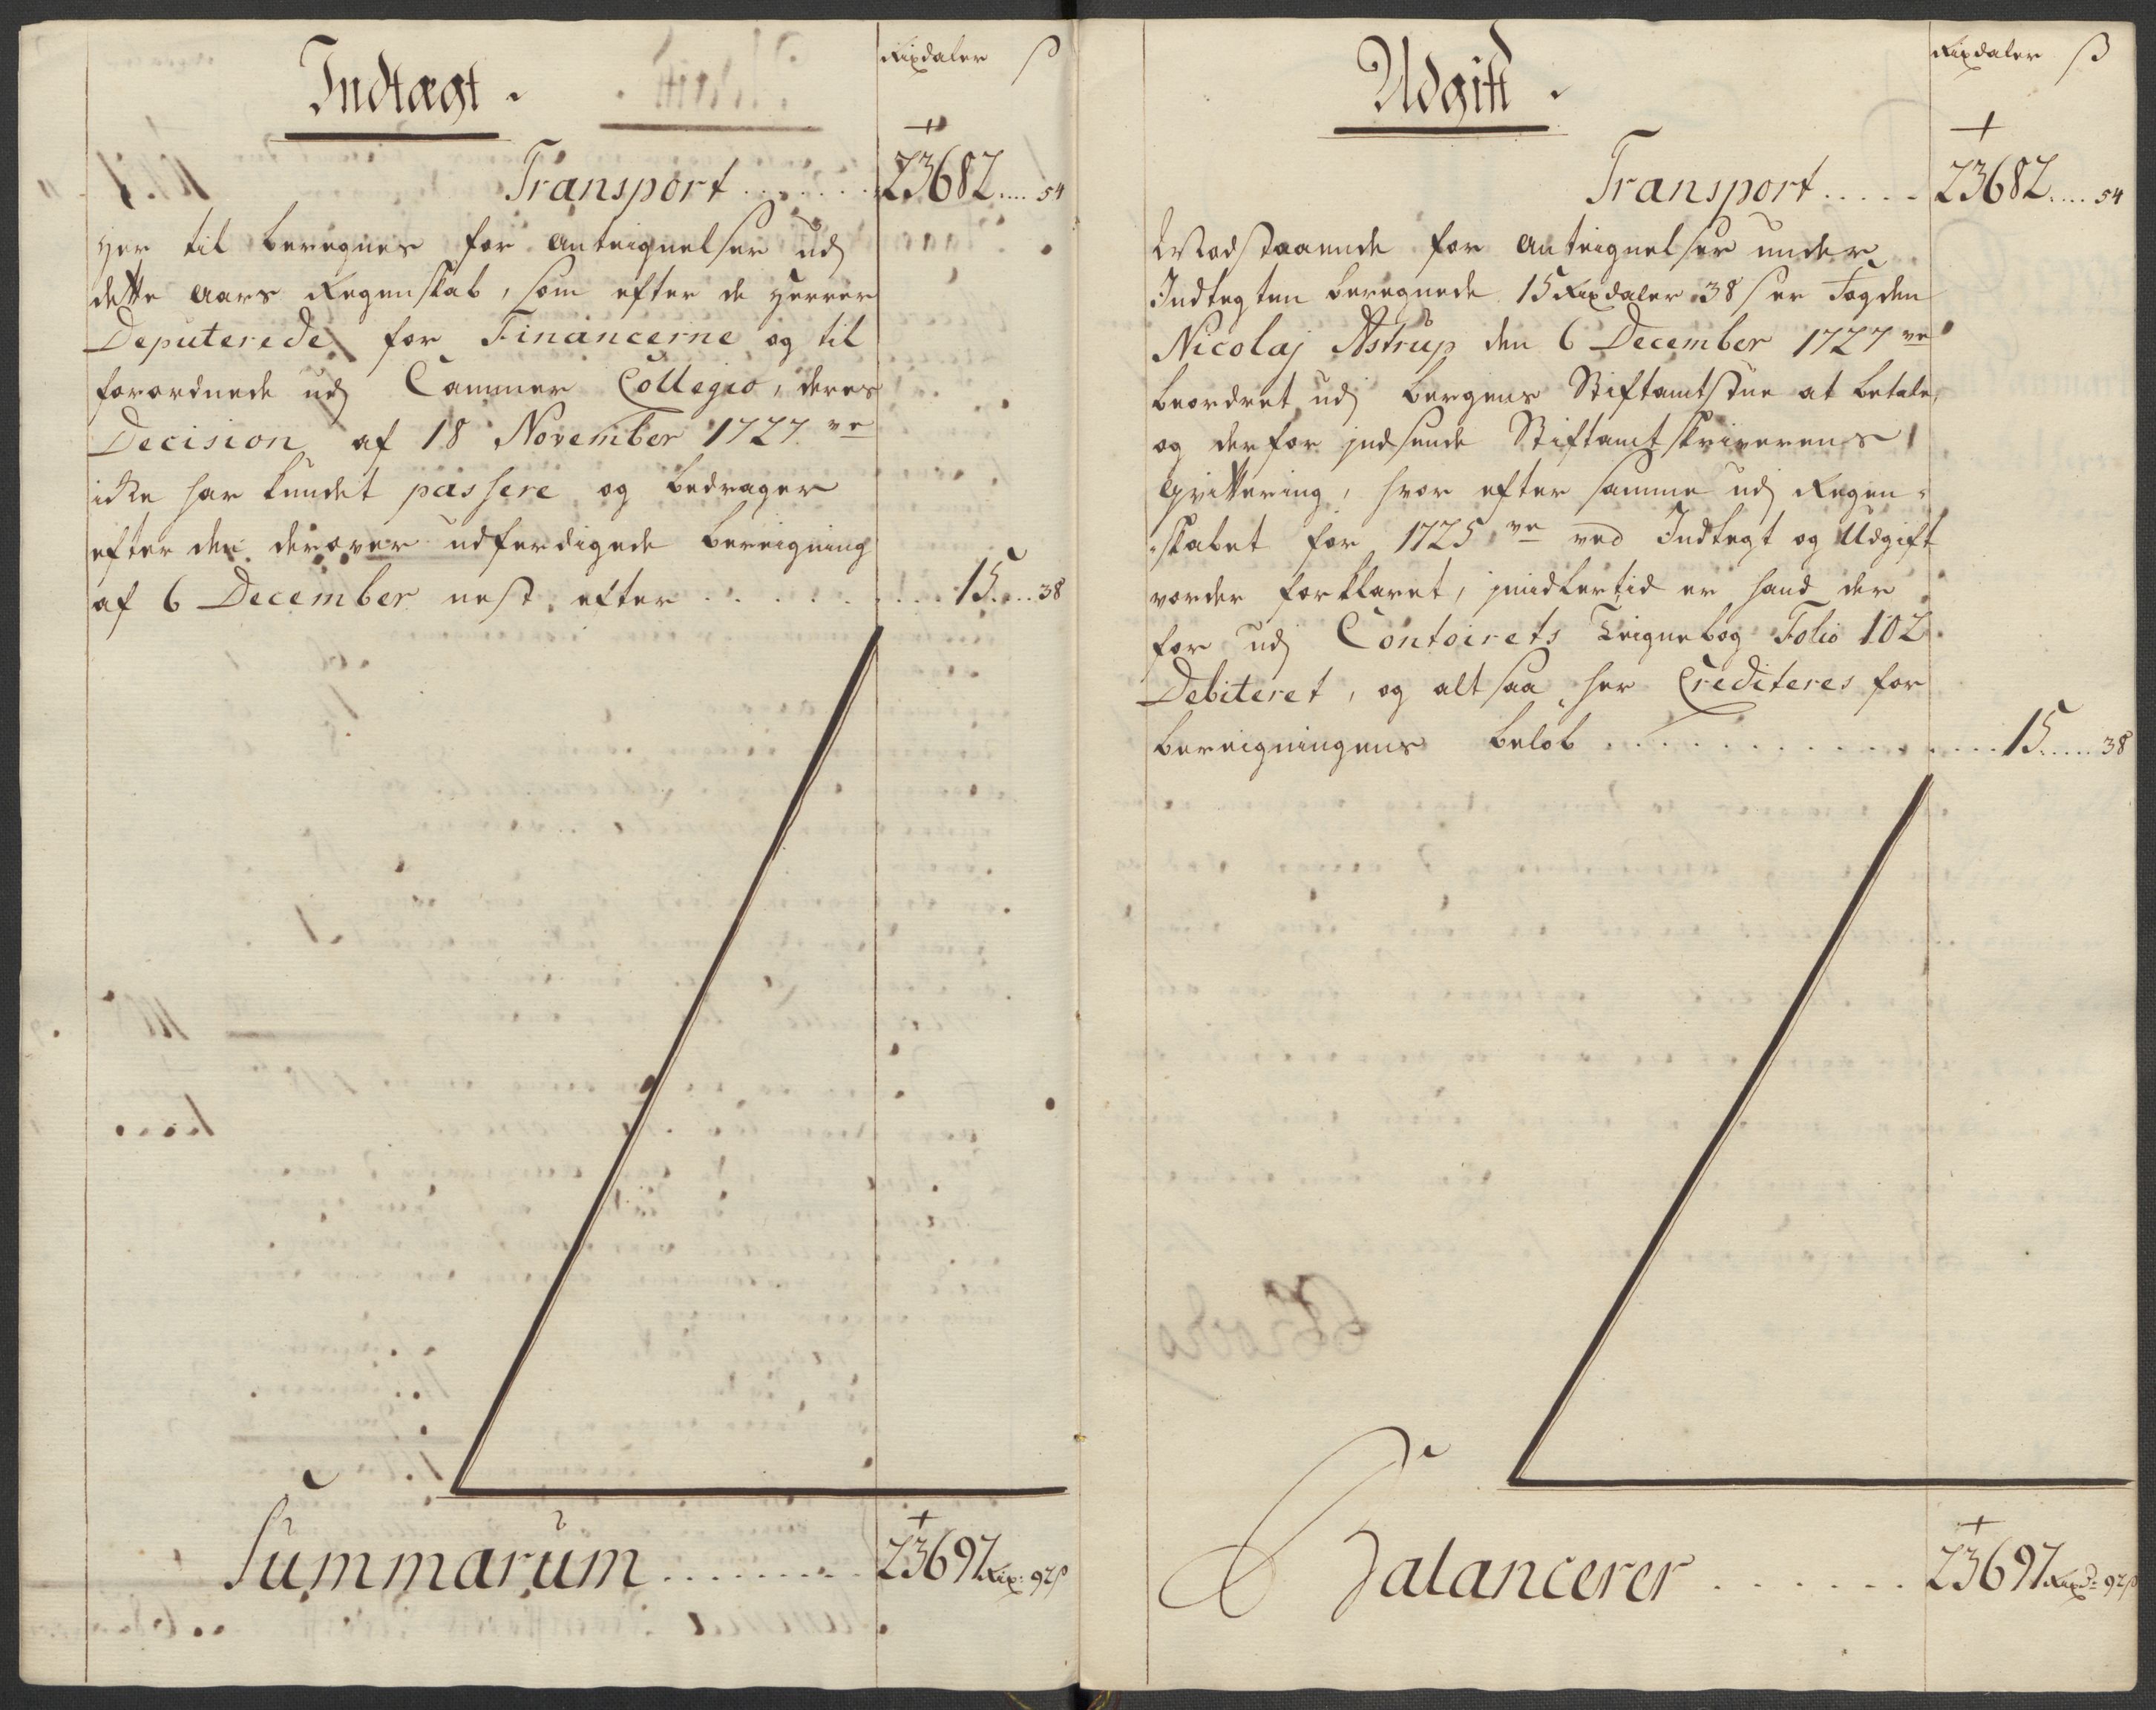 Indtægt.
Rixdaler ß
Transport ....... 23682.... 54
Her til beregnes for Anteignelser udj
dette Aars Regenskab, som efter de Herrer
Deputerede for Financerne og til
forordnede udj Cammer Collegio, deres
Decision af 18 November 1727 ve
icke har kundet passere og bedrager
efter den derover udferdigede bereigning
af 6 December nest efter ......... 15.... 38
Summarum ........ 23697 Rix: 92 ß
Udgift.
Rixdaler ß
Transport ..... 23682.... 54
Modstaaende for Anteignelser under
Indtegten beregnede 15 Rixdaler 38 s er Fogden
Nicolaj Astrup den 6 December 1727 ve
beordret udj Bergens Stiftamtstue at betale,
og derfor jndsende Stiftamtskriverens
Qvittering, hvor efter samme udj Regen-
skabet for 1725 ve ved Indtegt og Udgift
vorder forklaret, jmidlertid er hand der
for udj Contoirets Teignebog Folio 102
Debiteret, og altsaa her Crediteres for
bereigningens beløb .............. 15..... 38
Balancerer ...... 23697 Rixd: 92 ß